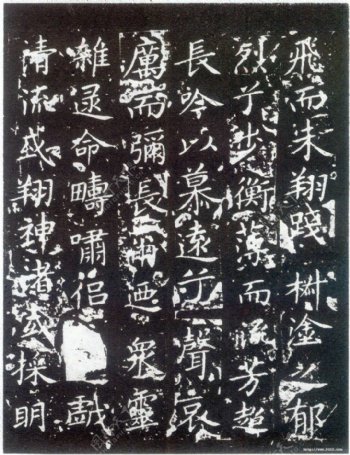 飛而未翔踐樹塗之郁
烈兮步衡薄而流芳超
長吟以慕遠兮聲哀
厲而彌長爾迺衆靈
雜遝命疇嘯侣 戲
清流或翔神渚或採明